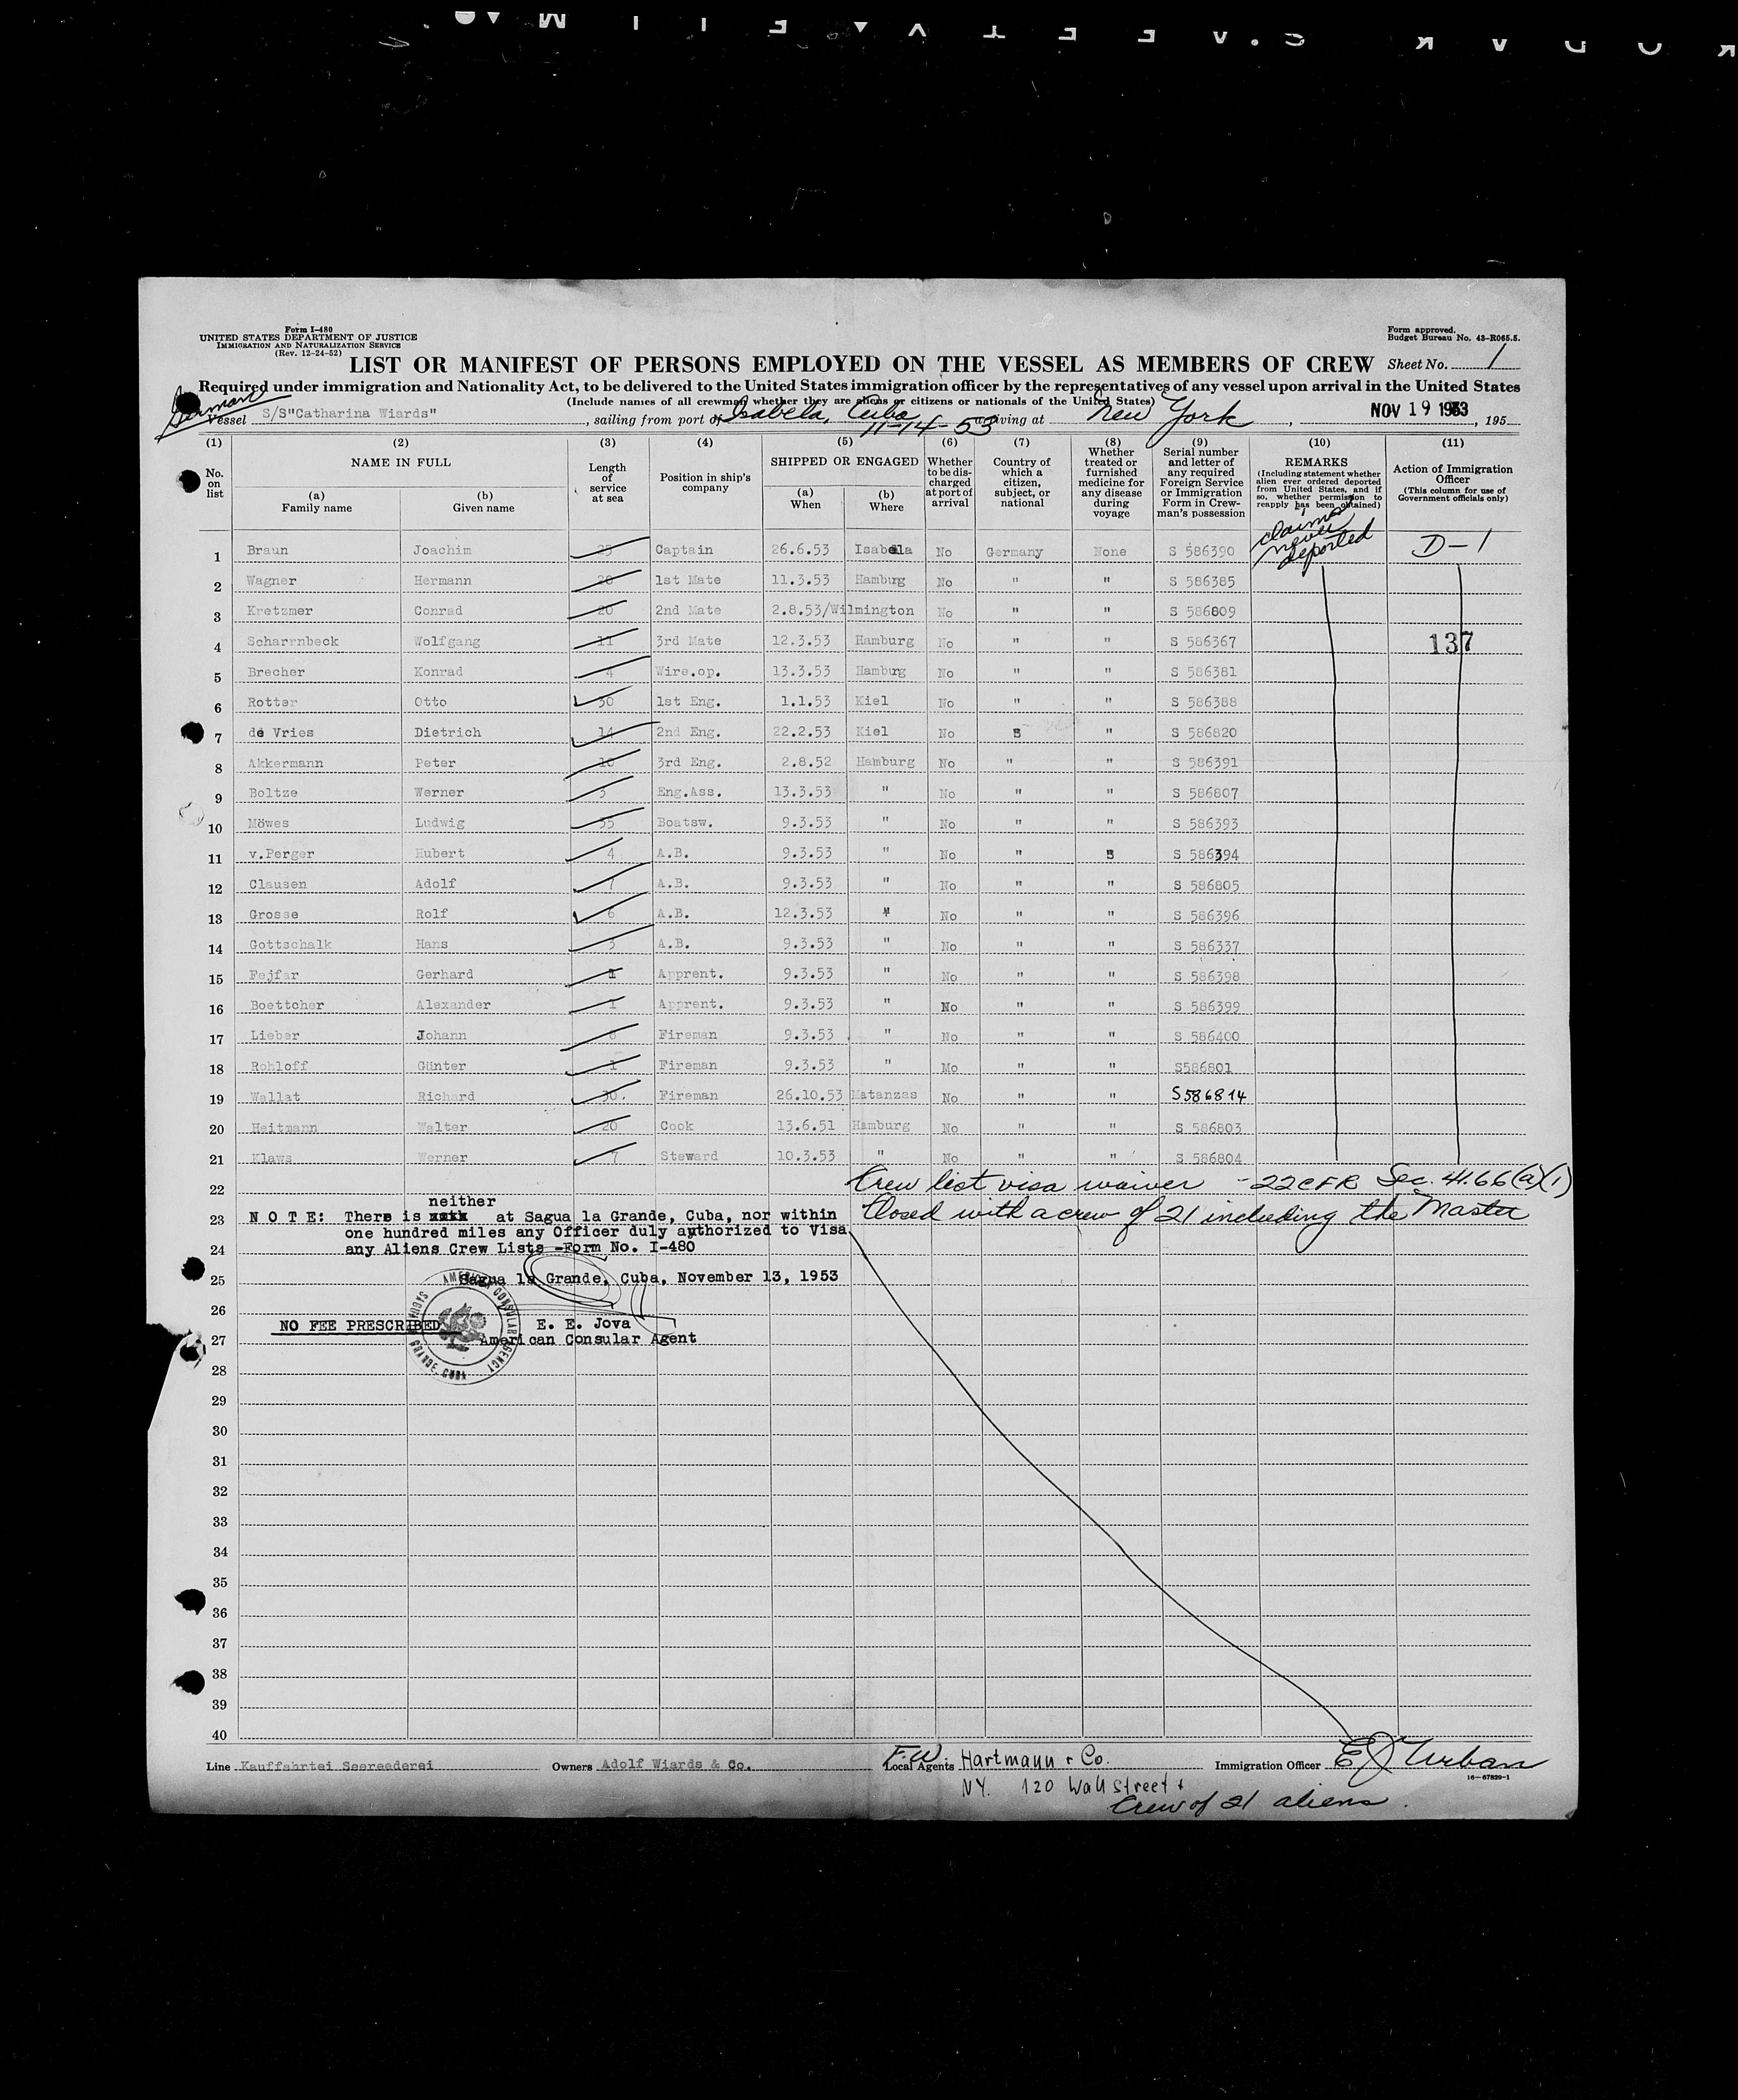 Form I-480
UNITED STATES DEPARTMENT OF JUSTICE
IMMIGRATION AND NATURALIZATION SERVICE
(Rev. 12-24-52)
Form approved.
Budget Bureau No. 43-R065.5.
LIST OR MANIFEST OF PERSONS EMPLOYED ON THE VESSEL AS MEMBERS OF CREW
Sheet No. 1
Required under immigration and Nationality Act, to be delivered to the United States immigration officer by the representatives of any vessel upon arrival in the United States
(Include names of all crewmen whether they are aliens or citizens or nationals of the United States)
German
Vessel S/S"Catharina Wiards", sailing from port of Isabela, Cuba arriving at New York, NOV 19 1953, 195
11-14-53
(1) (2) (3) (4) (5) (6) (7) (8) (9) (10) (11)
No. on list
NAME IN FULL
(a) Family name
(b) Given name
Length of service at sea
Position in ship's company
SHIPPED OR ENGAGED
(a) When
(b) Where
Whether to be discharged at port of arrival
Country of which a citizen, subject, or national
Whether treated or furnished medicine for any disease during voyage
Serial number and letter of any required Foreign Service or Immigration Form in Crewman's possession
REMARKS
(Including statement whether alien ever ordered deported from United States, and if so, whether permission to reapply has been obtained)
Action of Immigration Officer
(This column for use of Government officials only)
claims never deported
1 Braun Joachim 25 Captain 26.6.53 Isabela No Germany None S 586390 D-1
2 Wagner Hermann 20 1st Mate 11.3.53 Hamburg No " " S 586385
3 Kretzmer Conrad 20 2nd Mate 2.8.53/Wilmington No " " S 586809
4 Scharrnbeck Wolfgang 11 3rd Mate 12.3.53 Hamburg No " " S 586367 137
5 Brecher Konrad 4 Wire.op. 13.3.53 Hamburg No " " S 586381
6 Rotter Otto 30 1st Eng. 1.1.53 Kiel No " " S 586388
7 de Vries Dietrich 14 2nd Eng. 22.2.53 Kiel No " " S 586820
8 Akkermann Peter 10 3rd Eng. 2.8.52 Hamburg No " " S 586391
9 Boltze Werner 3 Eng.Ass. 13.3.53 " No " " S 586807
10 Möwes Ludwig 35 Boatsw. 9.3.53 " No " " S 586393
11 v.Perger Hubert 4 A.B. 9.3.53 " No " " S 586394
12 Clausen Adolf 7 A.B. 9.3.53 " No " " S 586805
13 Grosse Rolf 6 A.B. 12.3.53 " No " " S 586396
14 Gottschalk Hans 3 A.B. 9.3.53 " No " " S 586337
15 Fejfar Gerhard 1 Apprent. 9.3.53 " No " " S 586398
16 Boettcher Alexander 1 Apprent. 9.3.53 " No " " S 586399
17 Lieber Johann Fireman 9.3.53 " No " " S 586400
18 Rohloff Günter 1 Fireman 9.3.53 " Mo " " S586801
19 Wallat Richard 30. Fireman 26.10.53 Matanzas No " " S586814
20 Heitmann Walter 20 Cook 13.6.51 Hamburg No " " S 586803
21 Klaws Werner 7 Steward 10.3.53 " No " " S 586804
22 Crew list visa waiver - 22 CFR Sec. 41.66(a)(1)
neither
23 NOTE: There is at Sagua la Grande, Cuba, nor within Closed with a crew of 21 including the Master
one hundred miles any Officer duly authorized to Visa
24 any Aliens Crew Lists -Form No. I-480
25 Sagua la Grande, Cuba, November 13, 1953
26
NO FEE PRESCRIBED E. E. Jova
27 American Consular Agent
AMERICAN CONSULAR AGENCY SAGUA LA GRANDE, CUBA
28
29
30
31
32
33
34
35
36
37
38
39
40
Line Kauffahrtei Seereederei Owners Adolf Wiards & Co. Local Agents F.W. Hartmann & Co. Immigration Officer E J Urban
16-67829-1
N.Y. 120 Wall Street
Crew of 21 aliens.